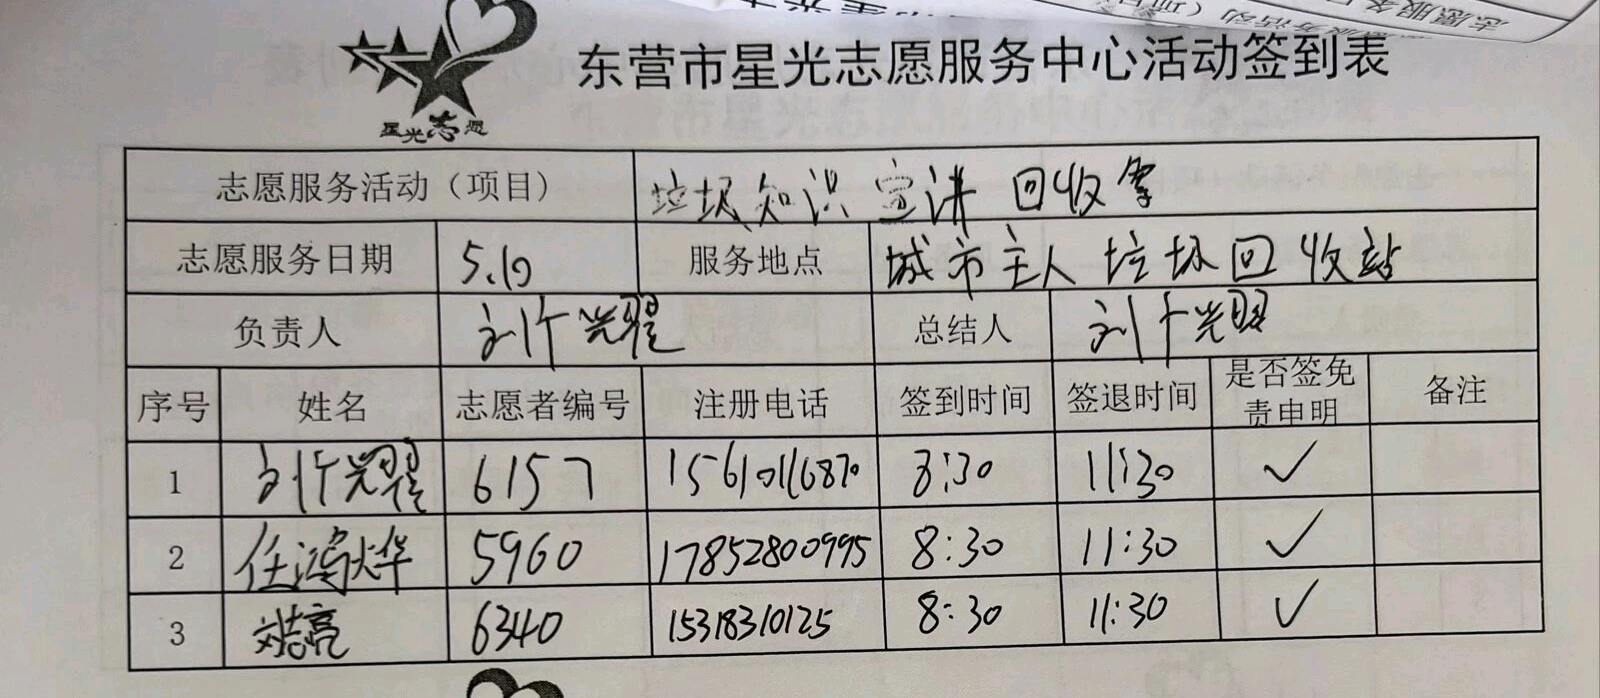 星光志愿
东营市星光志愿服务中心活动签到表
志愿服务活动（项目） 垃圾知识宣讲 回收零
志愿服务日期 5.10 服务地点 城市主人垃圾回收站
负责人 刘竹光曜 总结人 刘竹光曜
序号 姓名 志愿者编号 注册电话 签到时间 签退时间 是否签免责申明 备注
1 6157 15610116870 8:30 11:30 ✓
2 任鸿烨 5960 17852800995 8:30 11:30 ✓
3 6340 15318310125 8:30 11:30 ✓